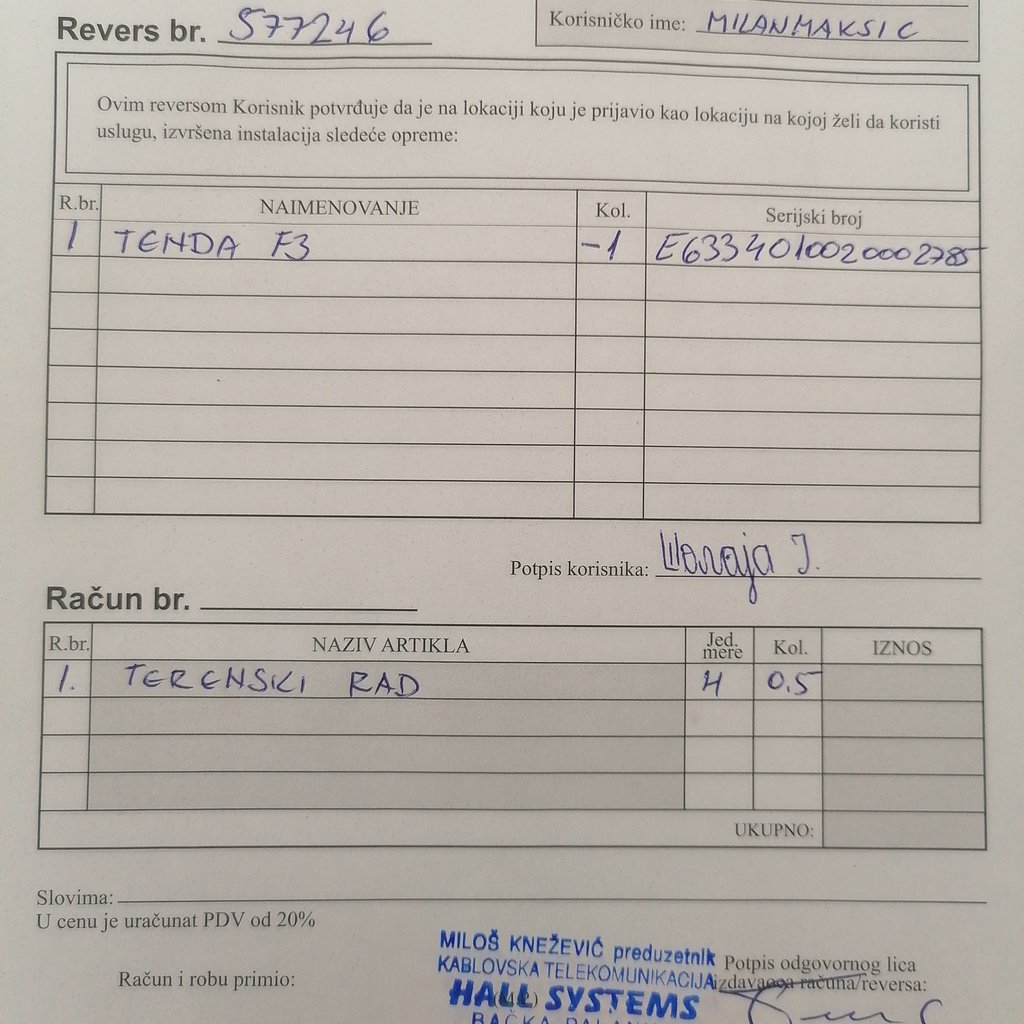 Revers br. 577246
Korisničko ime: MILANMAKSIC
Ovim reversom Korisnik potvrđuje da je na lokaciji koju je prijavio kao lokaciju na kojoj želi da koristi
uslugu, izvršena instalacija sledeće opreme:
R.br. NAIMENOVANJE Kol. Serijski broj
1 TENDA F3 -1 E6334010020002785
Potpis korisnika: J.
Račun br.
R.br. NAZIV ARTIKLA Jed. mere Kol. IZNOS
1. TERENSKI RAD H 0.5
UKUPNO:
Slovima:
U cenu je uračunat PDV od 20%
MILOŠ KNEŽEVIĆ preduzetnik
KABLOVSKA TELEKOMUNIKACIJA
HALL SYSTEMS
BAČKA
Račun i robu primio:
Potpis odgovornog lica
izdavaoca računa/reversa: